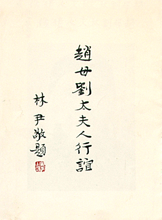 趙母劉太夫人行誼
林尹敬題